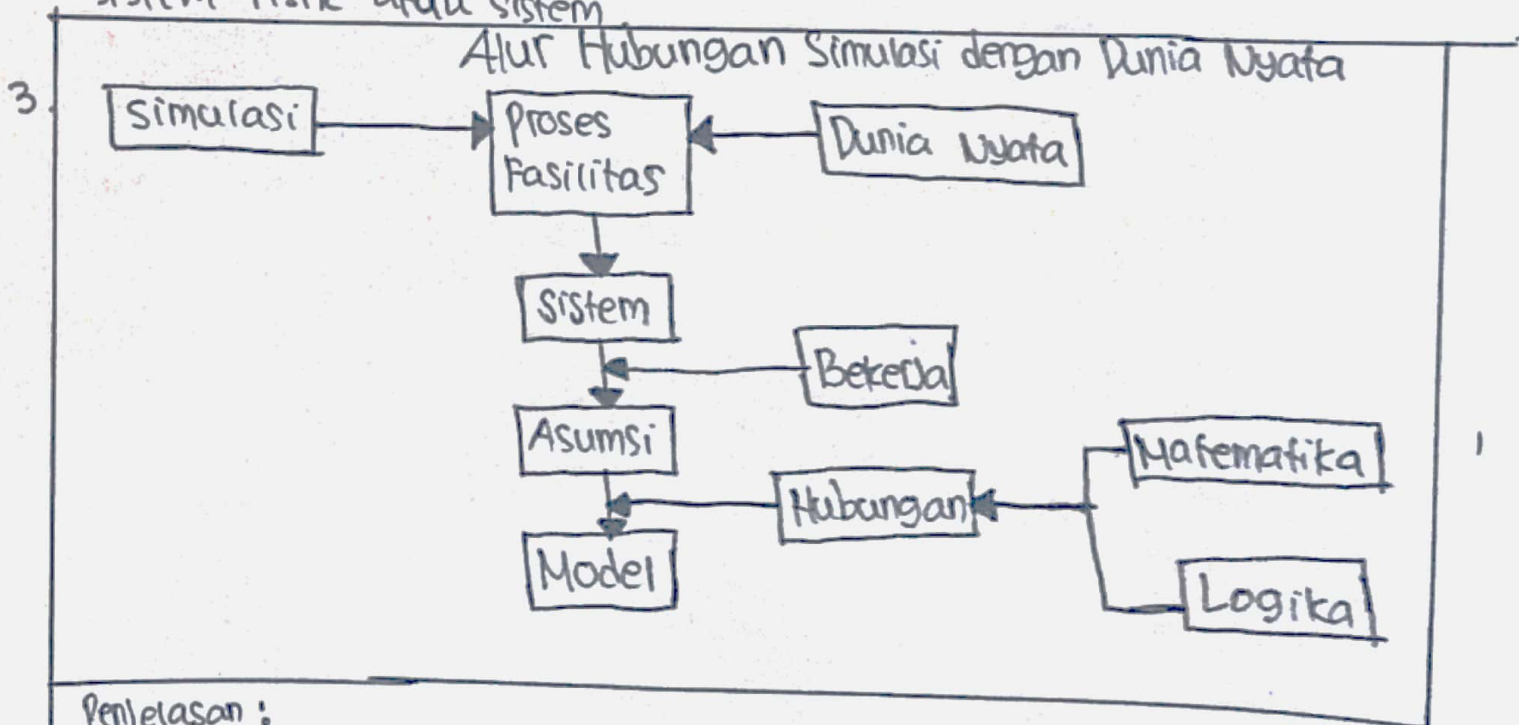 sistem
Alur Hubungan Simulasi dengan Dunia Nyata
3.
Simulasi
Proses
Fasilitas
Dunia Nyata
Sistem
Bekerja
Asumsi
Matematika
Hubungan
Model
Logika
Penjelasan :